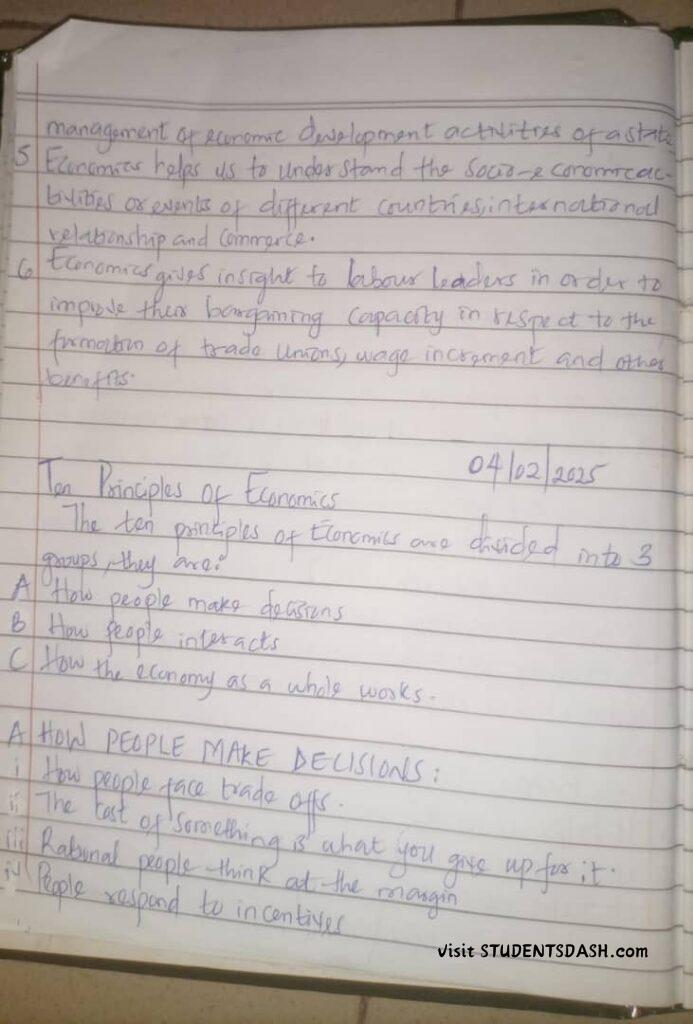 management of economic development activities of a state
5 Economics helps us to understand the socio-economic ac-
tivities or events of different countries, international
relationship and commerce.
6 Economics gives insight to labour leaders in order to
improve their bargaining capacity in respect to the
formation of trade unions, wage increment and other
benefits.
04/02/2025
Ten Principles of Economics
The ten principles of Economics are divided into 3
groups, they are:
A How people make decisions
B How people interacts
C How the economy as a whole works.
A HOW PEOPLE MAKE DECISIONS:
i How people face trade offs.
ii The cost of something is what you give up for it.
iii Rational people think at the margin
iv People respond to incentives
visit STUDENTSDASH.com